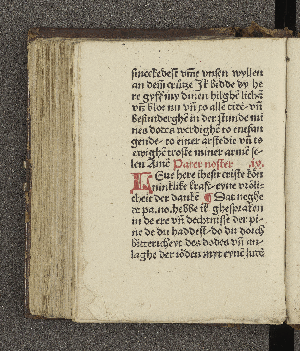 smeckedest vmme vnsen wyllen
an dem crutze Jk bidde dy he
re gyff my dinen hilghe lichā
vn̄ blot nu vn̄ to alle tide · vn̄
besunderghe in der stunde mi
nes dotes werdighe to entfan
gende · to einer arstedie vn̄ to
ewighē troste miner armē se
len Amē Pater noster xv.
Eue here ihesu criste kon
ninklike kraft · eyne vroli
cheit der danke ¶ Dat neghē
de pa. no. hebbe ik ghespraken
in de ere vn̄ dechtnisse der pi
ne de du haddest · do du dorch
bittericheyt des dodes vn̄ an
laghe der iöden myt eyner lude